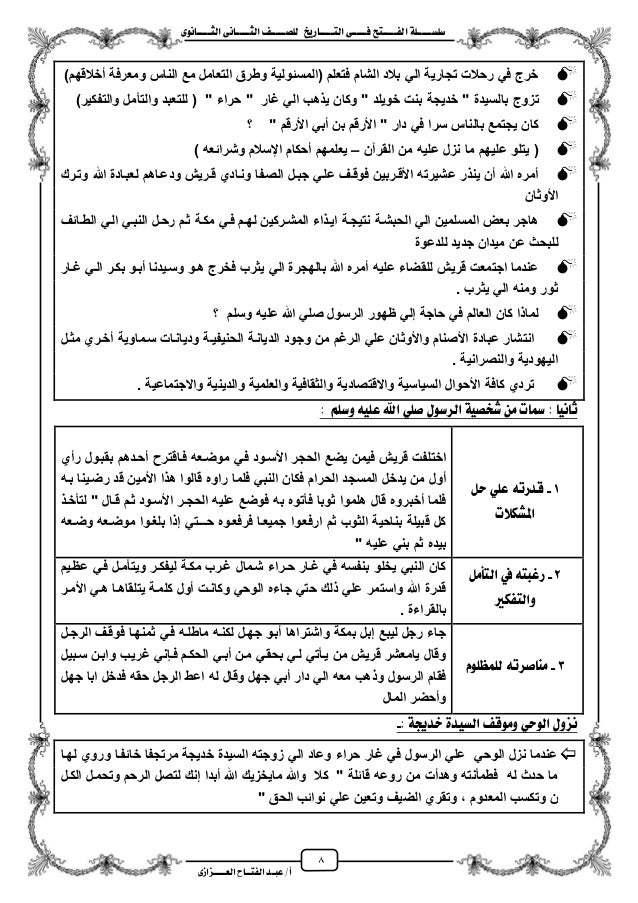 سلسلة الفتح فى التاريخ للصف الثانى الثانوى
خرج في رحلات تجارية الي بلاد الشام فتعلم (المسئولية وطرق التعامل مع الناس ومعرفة أخلاقهم)
تزوج بالسيدة " خديجة بنت خويلد " وكان يذهب الي غار " حراء " ( للتعبد والتأمل والتفكير)
كان يجتمع بالناس سرا في دار " الأرقم بن أبي الأرقم " ؟
( يتلو عليهم ما نزل عليه من القرآن – يعلمهم أحكام الإسلام وشرائعه )
أمره الله أن ينذر عشيرته الأقربين فوقف علي جبل الصفا ونادي قريش ودعاهم لعبادة الله وترك
الأوثان
هاجر بعض المسلمين الي الحبشة نتيجة ايذاء المشركين لهم في مكة ثم رحل النبي الي الطائف
للبحث عن ميدان جديد للدعوة
عندما اجتمعت قريش للقضاء عليه أمره الله بالهجرة الي يثرب فخرج هو وسيدنا أبو بكر الي غار
ثور ومنه الي يثرب .
لماذا كان العالم في حاجة إلي ظهور الرسول صلي الله عليه وسلم ؟
انتشار عبادة الأصنام والأوثان علي الرغم من وجود الديانة الحنيفية وديانات سماوية أخري مثل
اليهودية والنصرانية .
تردي كافة الأحوال السياسية والاقتصادية والثقافية والعلمية والدينية والاجتماعية .
ثانيا : سمات من شخصية الرسول صلي الله عليه وسلم :
١ ـ قدرته علي حل
المشكلات
اختلفت قريش فيمن يضع الحجر الأسود في موضعه فاقترح أحدهم بقبول رأي
أول من يدخل المسجد الحرام فكان النبي فلما راوه قالوا هذا الأمين قد رضينا به
فلما أخبروه قال هلموا ثوبا فأتوه به فوضع عليه الحجر الأسود ثم قال " لتأخذ
كل قبيلة بناحية الثوب ثم ارفعوا جميعا فرفعوه حتي إذا بلغوا موضعه وضعه
بيده ثم بني عليه "
٢ ـ رغبته في التأمل
والتفكير
كان النبي يخلو بنفسه في غار حراء شمال غرب مكة ليفكر ويتأمل في عظيم
قدرة الله واستمر علي ذلك حتي جاءه الوحي وكانت أول كلمة يتلقاها هي الأمر
بالقراءة .
٣ ـ مناصرته للمظلوم
جاء رجل ليبيع إبل بمكة واشتراها أبو جهل لكنه ماطله في ثمنها فوقف الرجل
وقال يامعشر قريش من يأتي لي بحقي من أبي الحكم فإني غريب وابن سبيل
فقام الرسول وذهب معه الي دار أبي جهل وقال له اعط الرجل حقه فدخل ابا جهل
وأحضر المال
نزول الوحي وموقف السيدة خديجة :ـ
عندما نزل الوحي علي الرسول في غار حراء وعاد الي زوجته السيدة خديجة مرتجفا خائفا وروي لها
ما حدث له فطمأنته وهدأت من روعه قائلة " كلا والله مايخزيك الله أبدا إنك لتصل الرحم وتحمل الكل
ن وتكسب المعدوم ، وتقري الضيف وتعين علي نوائب الحق "
٨
أ/ عبد الفتاح العزازى